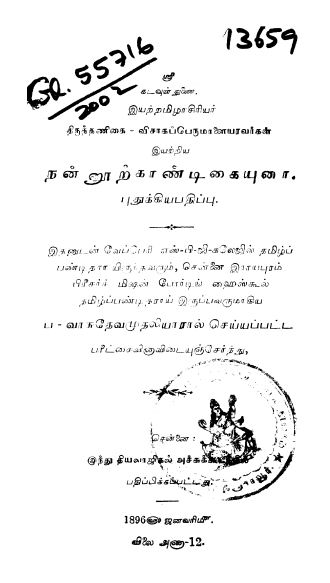 Gl. 55716
2002
13659
ஸ்ரீ
கடவுள் துணை.
இயற்றமிழாசிரியர்
திருத்தணிகை - விசாகப்பெருமாளையரவர்கள்
இயற்றிய
நன்னூற்காண்டிகையுரை.
புதுக்கியபதிப்பு.
இதனுடன் வேப்பேரி எஸ்-பி-ஜி-கலேஜில் தமிழ்ப்
பண்டிதராயிருந்தவரும், சென்னை இராயபுரம்
மிஷன் போர்டிங் ஹைஸ்கூல்
தமிழ்ப்பண்டிதராய் இருப்பவருமாகிய
ப - வாசுதேவமுதலியாரால் செய்யப்பட்ட
பரீட்சைவினாவிடையுஞ்சேர்ந்து,
சென்னை:
இந்து தியலாஜிகல்
பதிப்பிக்கப்பட்டது.
1896௵ ஜனவரி௴
விலை அணா-12.